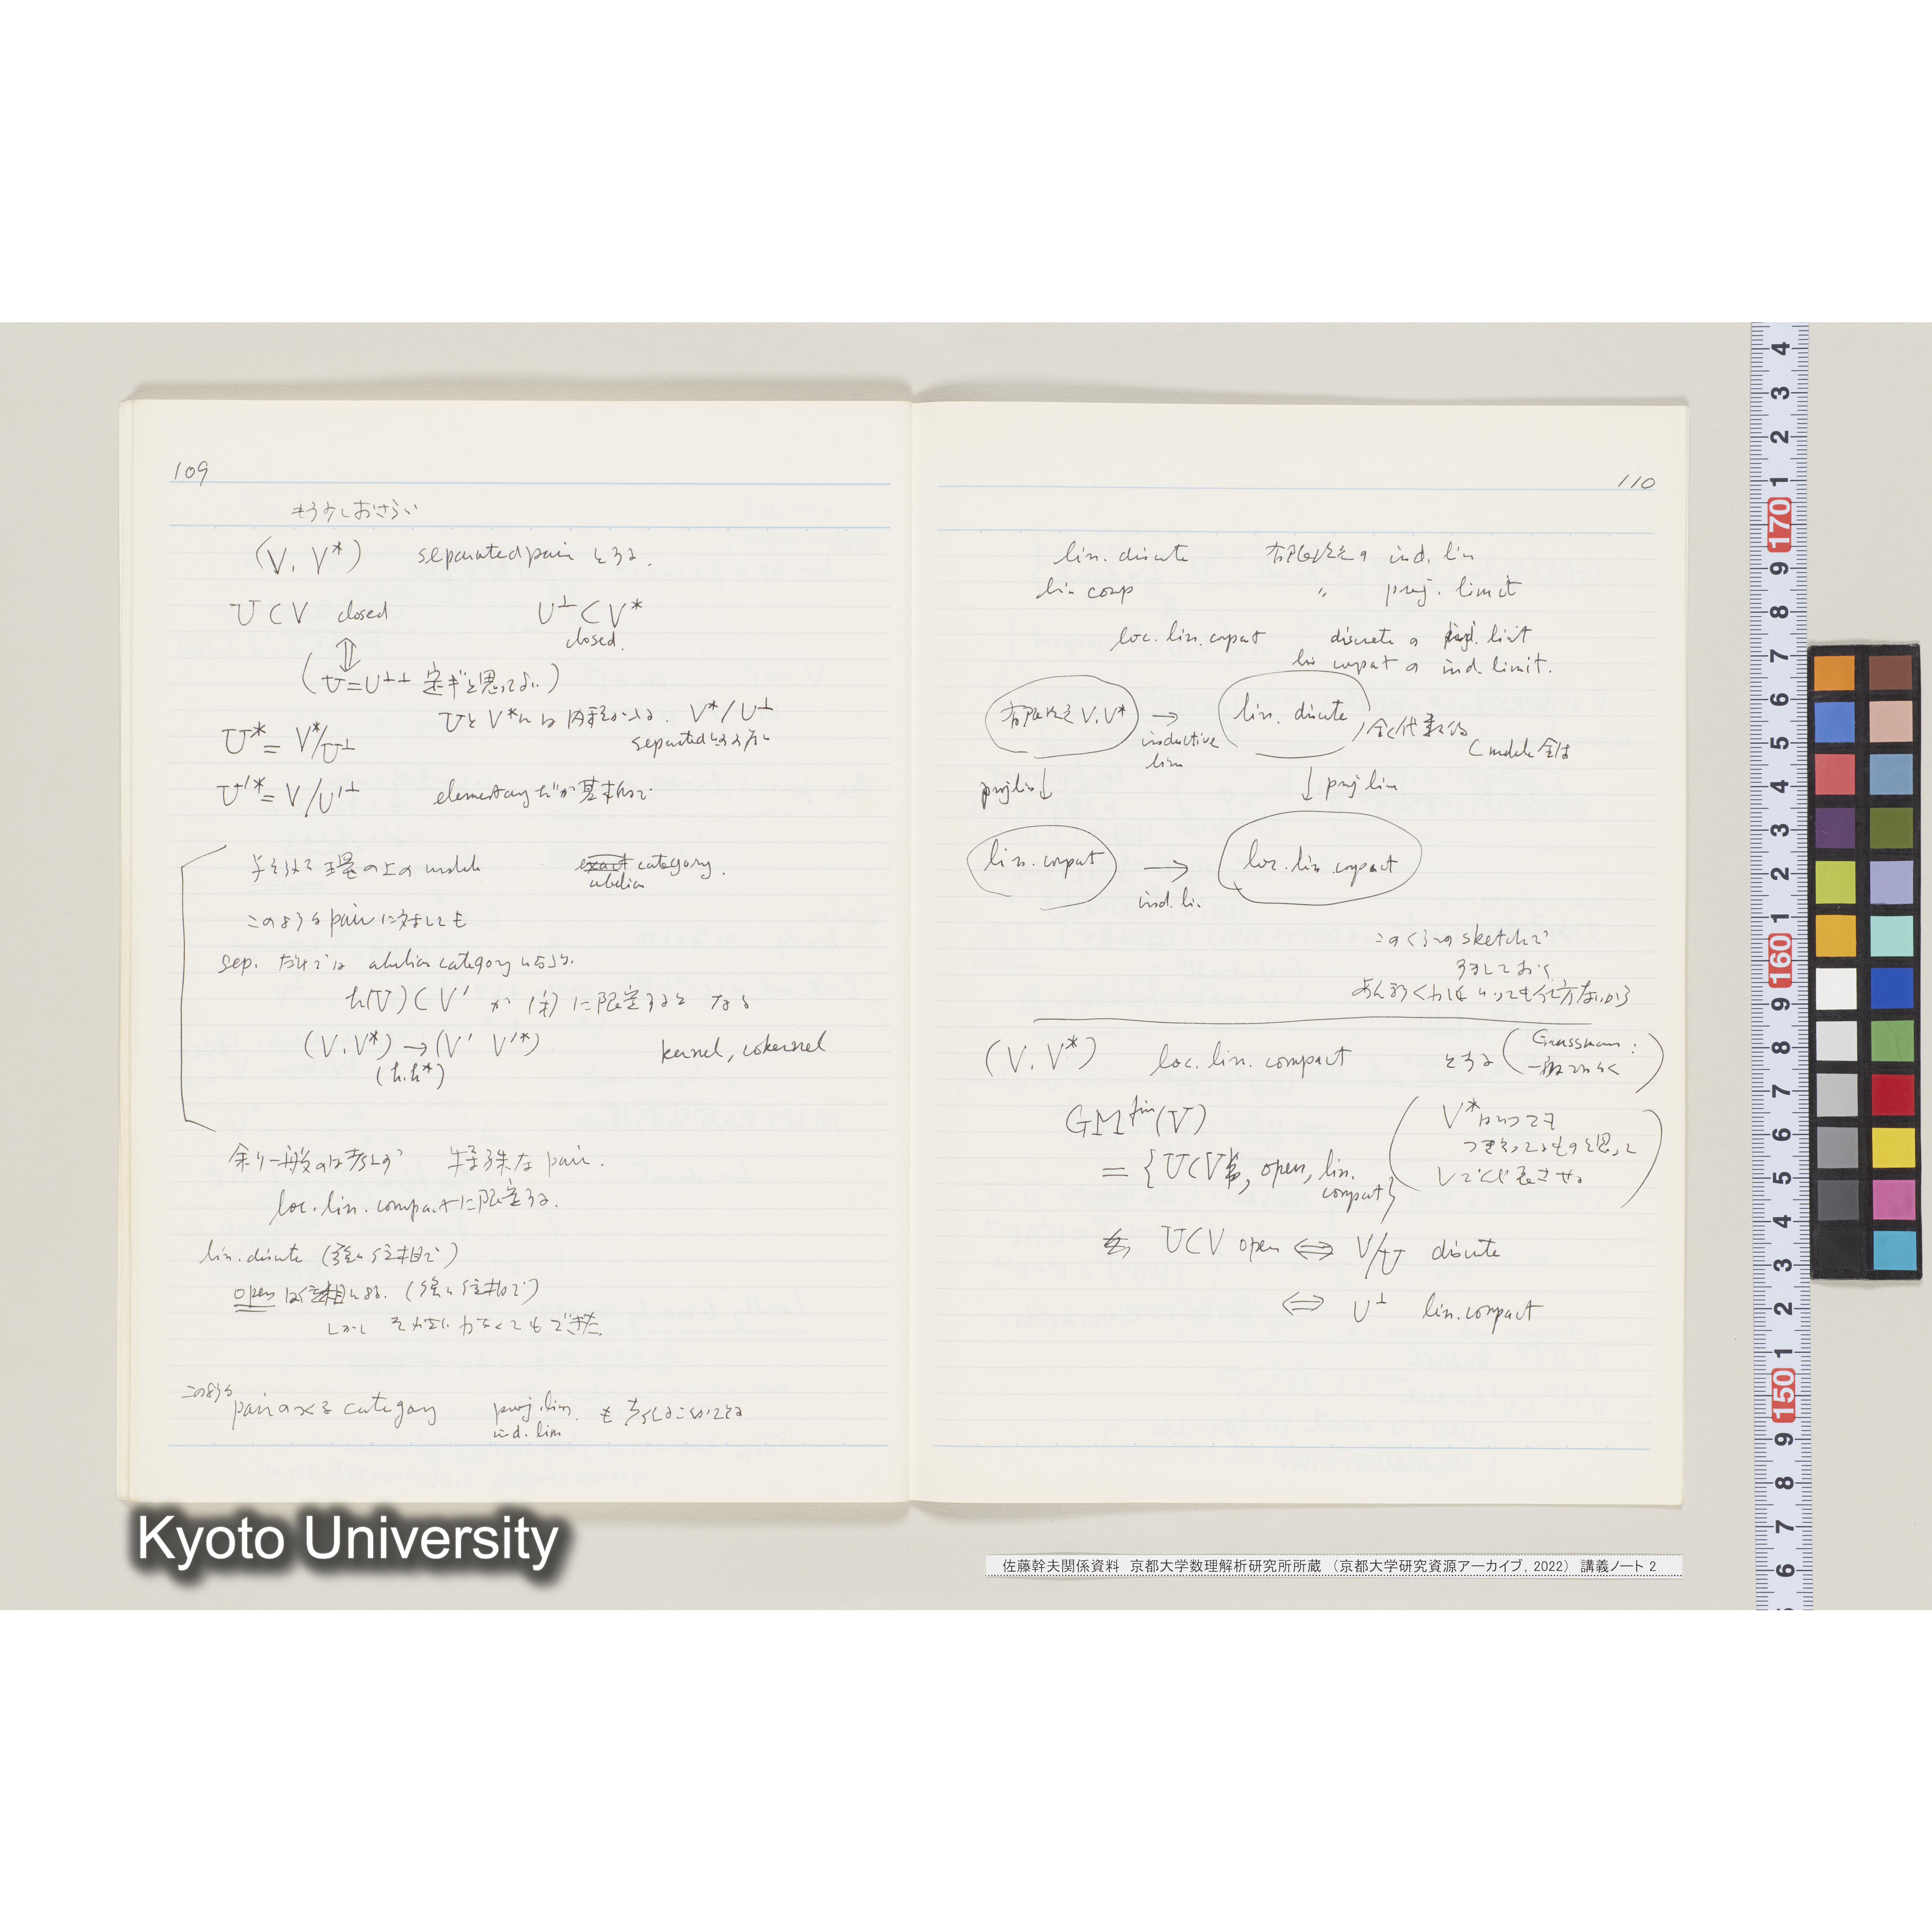 109
もう少しおさらい
(V, V*) separated pair とする.
U ⊂ V closed U⊥ ⊂ V* closed.
⇕
(U = U⊥⊥ 定ギと思ってよい)
UとV*には内積がある. V*/U⊥
separated
U* = V*/U⊥
U'* = V/U'⊥ elementary
環の上の module exact category.
abelian
このような pair に対しても
sep. だけでは abelian category にならない.
h(V) ⊂ V' が 閉 に限定すると なる
(V, V*) → (V' V'*) kernel, cokernel
(h, h*)
余り一般のは考えない 特殊な pair.
loc. lin. compact に限定する.
lin. discrete (強い位相で)
open は位相による. (強い位相で)
しかし それを使わなくてもできた.
このような
pair の作る category proj. lim. も
ind. lim
110
lin. discrete 有限次元の ind. lim
lin comp 〃 proj. limit
loc. lin. compact discrete の proj. limit
lin compact の ind. limit.
有限次元 V, V* → lin. discrete, 全く代数的
inductive
lim
proj lim ↓ ↓ proj lim
lin. compact → loc. lin. compact
ind. lim
このくらいの sketch で
しておく
あんまりくわしく いっても仕方ないから
(V, V*) loc. lin. compact とする (Grassmann: 一般
GM^fin(V) (V* はいつでも
= {U ⊂ V, open, lin. compact} ものと思って
U ⊂ V open ⇔ V/U discrete
⇔ U⊥ lin. compact
Kyoto University
佐藤幹夫関係資料 京都大学数理解析研究所所蔵 (京都大学研究資源アーカイブ, 2022) 講義ノート 2
4
3
2
1
170
9
8
7
6
5
4
3
2
1
160
9
8
7
6
5
4
3
2
1
150
9
8
7
6